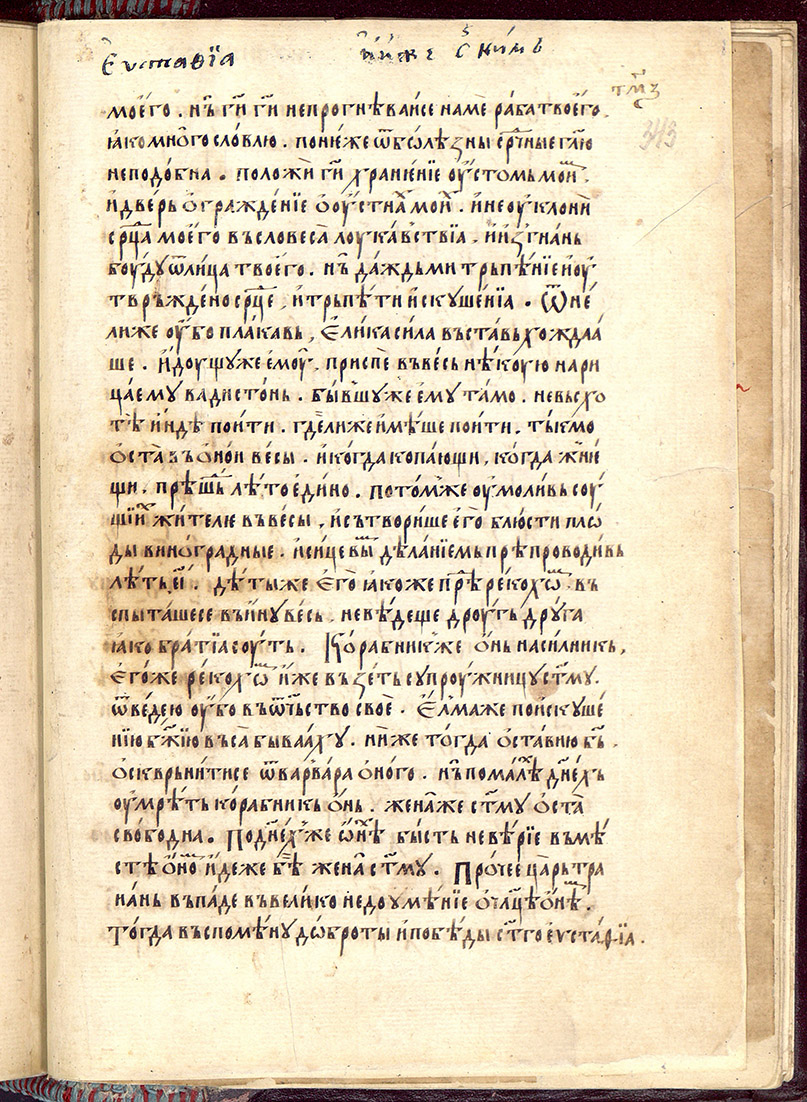 Еѵстаѳїа и҆и҆же с ни́мь
тм҃з
343
моег̀о . нь҆ гн҃и гн҃и непрогнѣваисе намѐ раба твоѐго .
ꙗко мно́гословлю . поне́же ѿболѣзны ср҃чные гл҃ю
неподо́бна . положѝ гн҃и хране́нїе оу҆стомь мои҆ⷨ .
и҆двéрь о҆гражде́нїе о҆оу҆стна̀ⷯ мои҆ⷯ . и҆неоуклонѝ
ср҃ца моего̀ въсловеса̀ лоука́вствїа . и҆и҆згнань
боу́доу ѿлица̀ твоего̀ . нь҆ да́ждьми трьпѣ́нїе и҆оу҆
твръжде́но ср҃це , и҆трьпѣ́ти и҆скꙋше́нїа . Ѿне́
лиже оу҆́бо пла́кавь , е҆лика сила въста́вь хожда́а
ше . и҆доу́щꙋже е҆моу҆̀ , приспѐ въве́сь нѣ́коую нари
ца́емꙋ вадисто́нь . бы́вшꙋже е҆мꙋ та́мо . невьсхо
тѣ̀ и҆́ндѣ пои́ти . где́лиже и҆мѣ́ше пои́ти . тъ́кмо
о҆ста̀ въ о҆но́и ве́сы . и҆когда копа́ющи , ко́гда жнѝе
щи . прѣ́быⷭ҇ лѣ́то е҆ди́но . пото́мже оу҆моли́вь соу́
щїи҆ⷯ жи́телїе въве́сы , и҆сътвори́ше е҆го̀ блю́сти пло́
ды виногра́дные . и҆си́це вьⷭ҇ дѣ́ланїемь прѣпроводи́вь
лѣ́ть е҃і . дѣ́тыже е҆го̀ ꙗ́коже прѣⷤ реко́хоⷨ въ
спыта́шесе въи҆́нꙋ ве́сь , неве́деще дроу́гь дрꙋга
ꙗко бра́тїа соу́ть . Кора́бникже о҆нь наси́лникь ,
е҆го́же реко́хоⷨ и҆́же възе́ть сꙋпроу́жницꙋ ст҃мꙋ .
ѿве́дею оу҆́бо въѿч҃ьство своѐ . Е҆лма́же поискꙋше́
нїю бж҃їю въса̀ быва́ахꙋ . ни́же то́гда о҆ста́вию бь҃ .
о҆сквръни́тисе ѿва́рвара о҆но́го . нь҆помалѣⷯ дне́хь
оу҆мрѣ́ть кора́бникь о҆нь . жена́же ст҃мꙋ о҆ста̀
свобо́дна . Подне́хже о҆нѣⷯ бы́сть неве́рїе въмѣ́
стѣ о҆ноⷨ и҆де́же бѣ̀ жена̀ ст҃мꙋ . Про́чее ца́рьтра
иа́нь въпа́де въвели́ко недоꙋмѣ́нїе о҆чл҃цѣ о҆нѣⷨ .
То́гда въспомѣ́нꙋ до́броты и҆побѣ́ды ст҃го е҆ѵста́фїа .